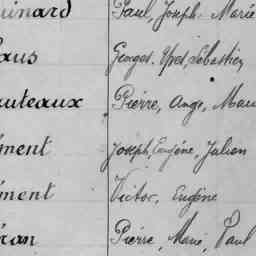 uinard Paul, Joseph, Marie
aus Georges, Yves, Sébastien
auteaux Pierre, Ange, Mau
ément Joseph, Eugène, Julien
ément Victor, Eugène
éran Pierre, Marie, Paul